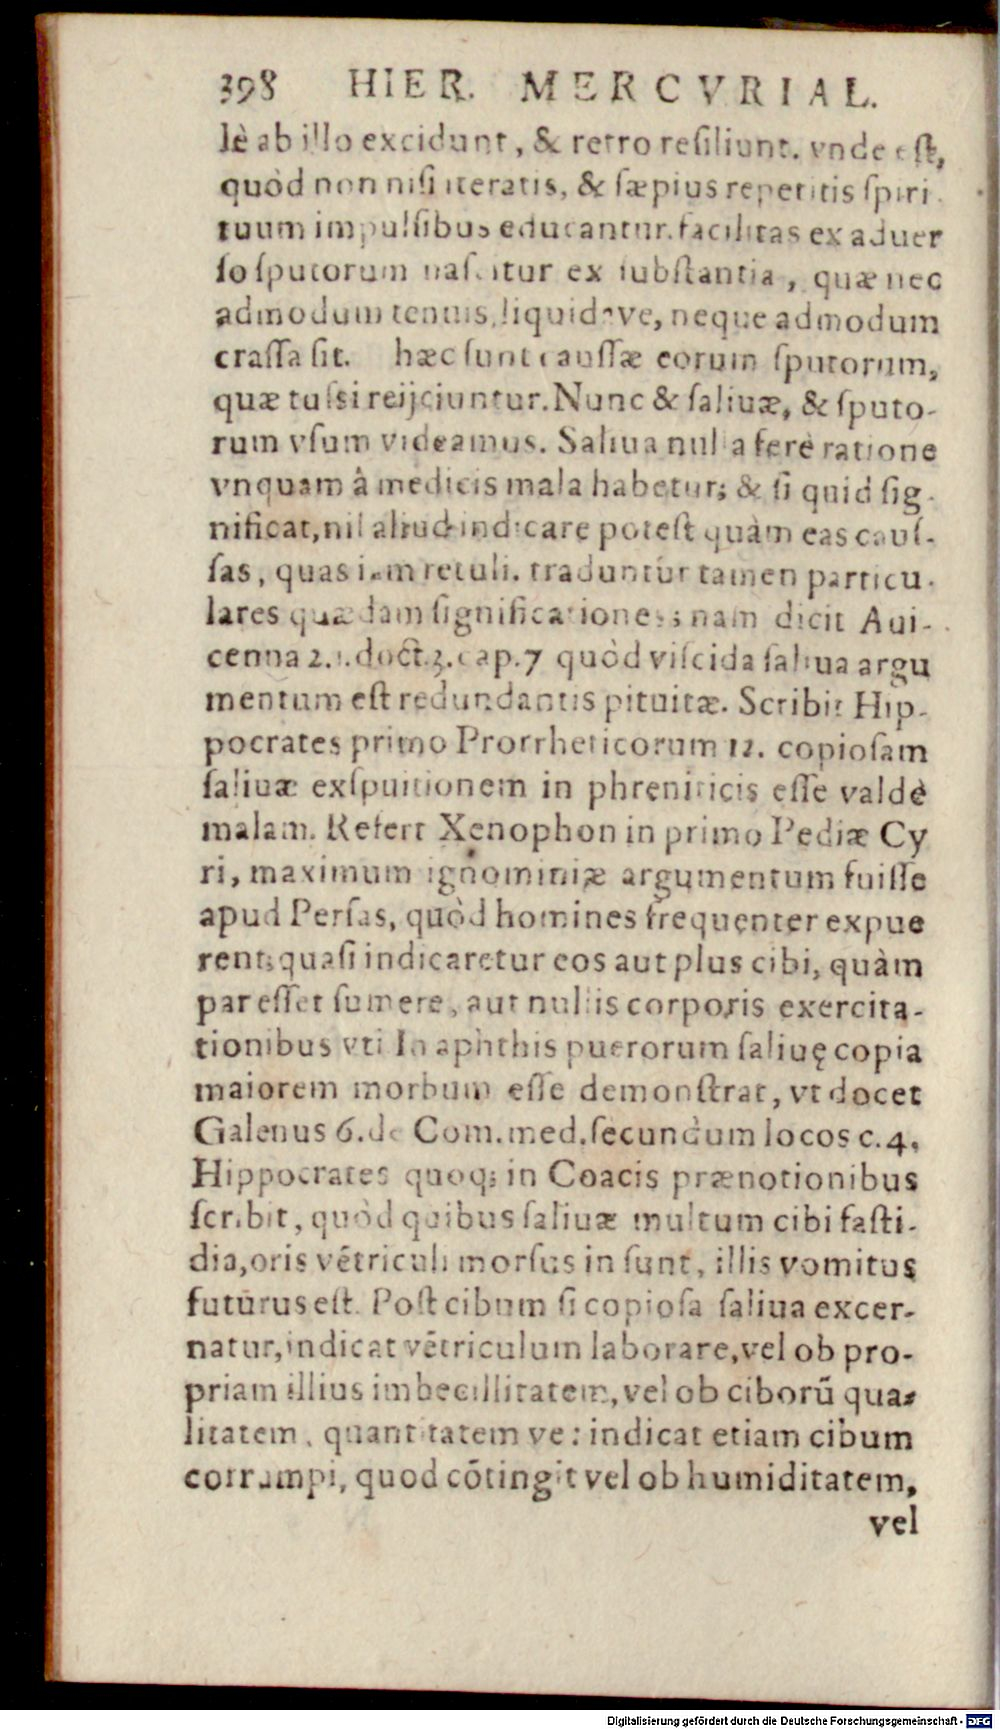 398 HIER. MERCVRIAL.
lè ab illo excidunt, & retro reſiliunt. vnde eſt,
quòd non niſi iteratis, & ſæpius repetitis ſpiri-
tuum impulſibus educantur. facilitas ex aduer
ſo ſputorum naſcitur ex ſubſtantia, quæ nec
admodum tenuis, liquidave, neque admodum
craſſa ſit. hæc ſunt cauſſæ eorum ſputorum,
quæ tuſsi reijciuntur. Nunc & ſaliuæ, & ſputo-
rum vſum videamus. Saliua nulla ferè ratione
vnquam â medicis mala habetur; & ſi quid ſig-
nificat, nil aliud indicare poteſt quàm eas cauſ-
ſas, quas iam retuli. traduntur tamen particu-
lares quædam ſignificationes; nam dicit Aui-
cenna 2.1.doct.3.cap.7 quòd viſcida ſaliua argu
mentum eſt redundantis pituitæ. Scribit Hip-
pocrates primo Prorrheticorum 12. copioſam
ſaliuæ exſpuitionem in phreniticis eſſe valdè
malam. Refert Xenophon in primo Pediæ Cy
ri, maximum ignominiæ argumentum fuiſſe
apud Perſas, quòd homines frequenter expue
rent; quaſi indicaretur eos aut plus cibi, quàm
par eſſet ſumere, aut nullis corporis exercita-
tionibus vti In aphthis puerorum ſaliuę copia
maiorem morbum eſſe demonſtrat, vt docet
Galenus 6.de Com.med.ſecundùm locos c.4.
Hippocrates quoq; in Coacis prænotionibus
ſcribit, quòd quibus ſaliuæ multum cibi faſti-
dia, oris vẽtriculi morſus in ſunt, illis vomitus
futurus eſt. Poſt cibum ſi copioſa ſaliua excer-
natur, indicat vẽtriculum laborare, vel ob pro-
priam illius imbecillitatem, vel ob ciborũ qua-
litatem, quantitatem ve: indicat etiam cibum
corrumpi, quod cõtingit vel ob humiditatem,
vel
Digitalisierung gefördert durch die Deutsche Forschungsgemeinschaft - DFG